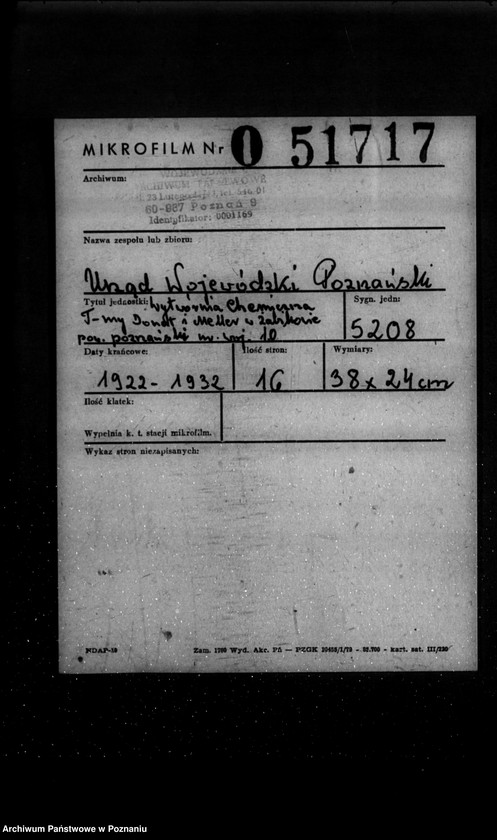 MIKROFILM Nr 0 51717
Archiwum:
WOJEWÓDZKIE
ARCHIWUM PAŃSTWOWE
60-967 Poznań 9
Identyfikator: 0001169
Nazwa zespołu lub zbioru:
Urząd Wojewódzki Poznański
Tytuł jednostki: Wytwórnia Chemiczna
F-my Donat i Meller w Żabikowie
pow. poznański nr. rej. 10
Sygn. jedn:
5208
Daty krańcowe:
1922-1932
Ilość stron:
16
Wymiary:
38 x 24 cm
Ilość klatek:
Wypełnia k. t. stacji mikrofilm.
Wykaz stron niezapisanych:
NDAP-18
Zam. 1700 Wyd. Akc. Pń — PZGK
kart. sat. III/220
Archiwum Państwowe w Poznaniu